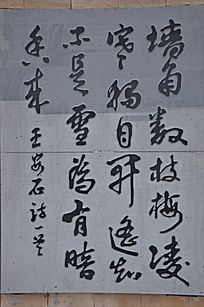 墙角数枝梅凌
寒独自开遥知
不是雪为有暗
香来王安石诗一首